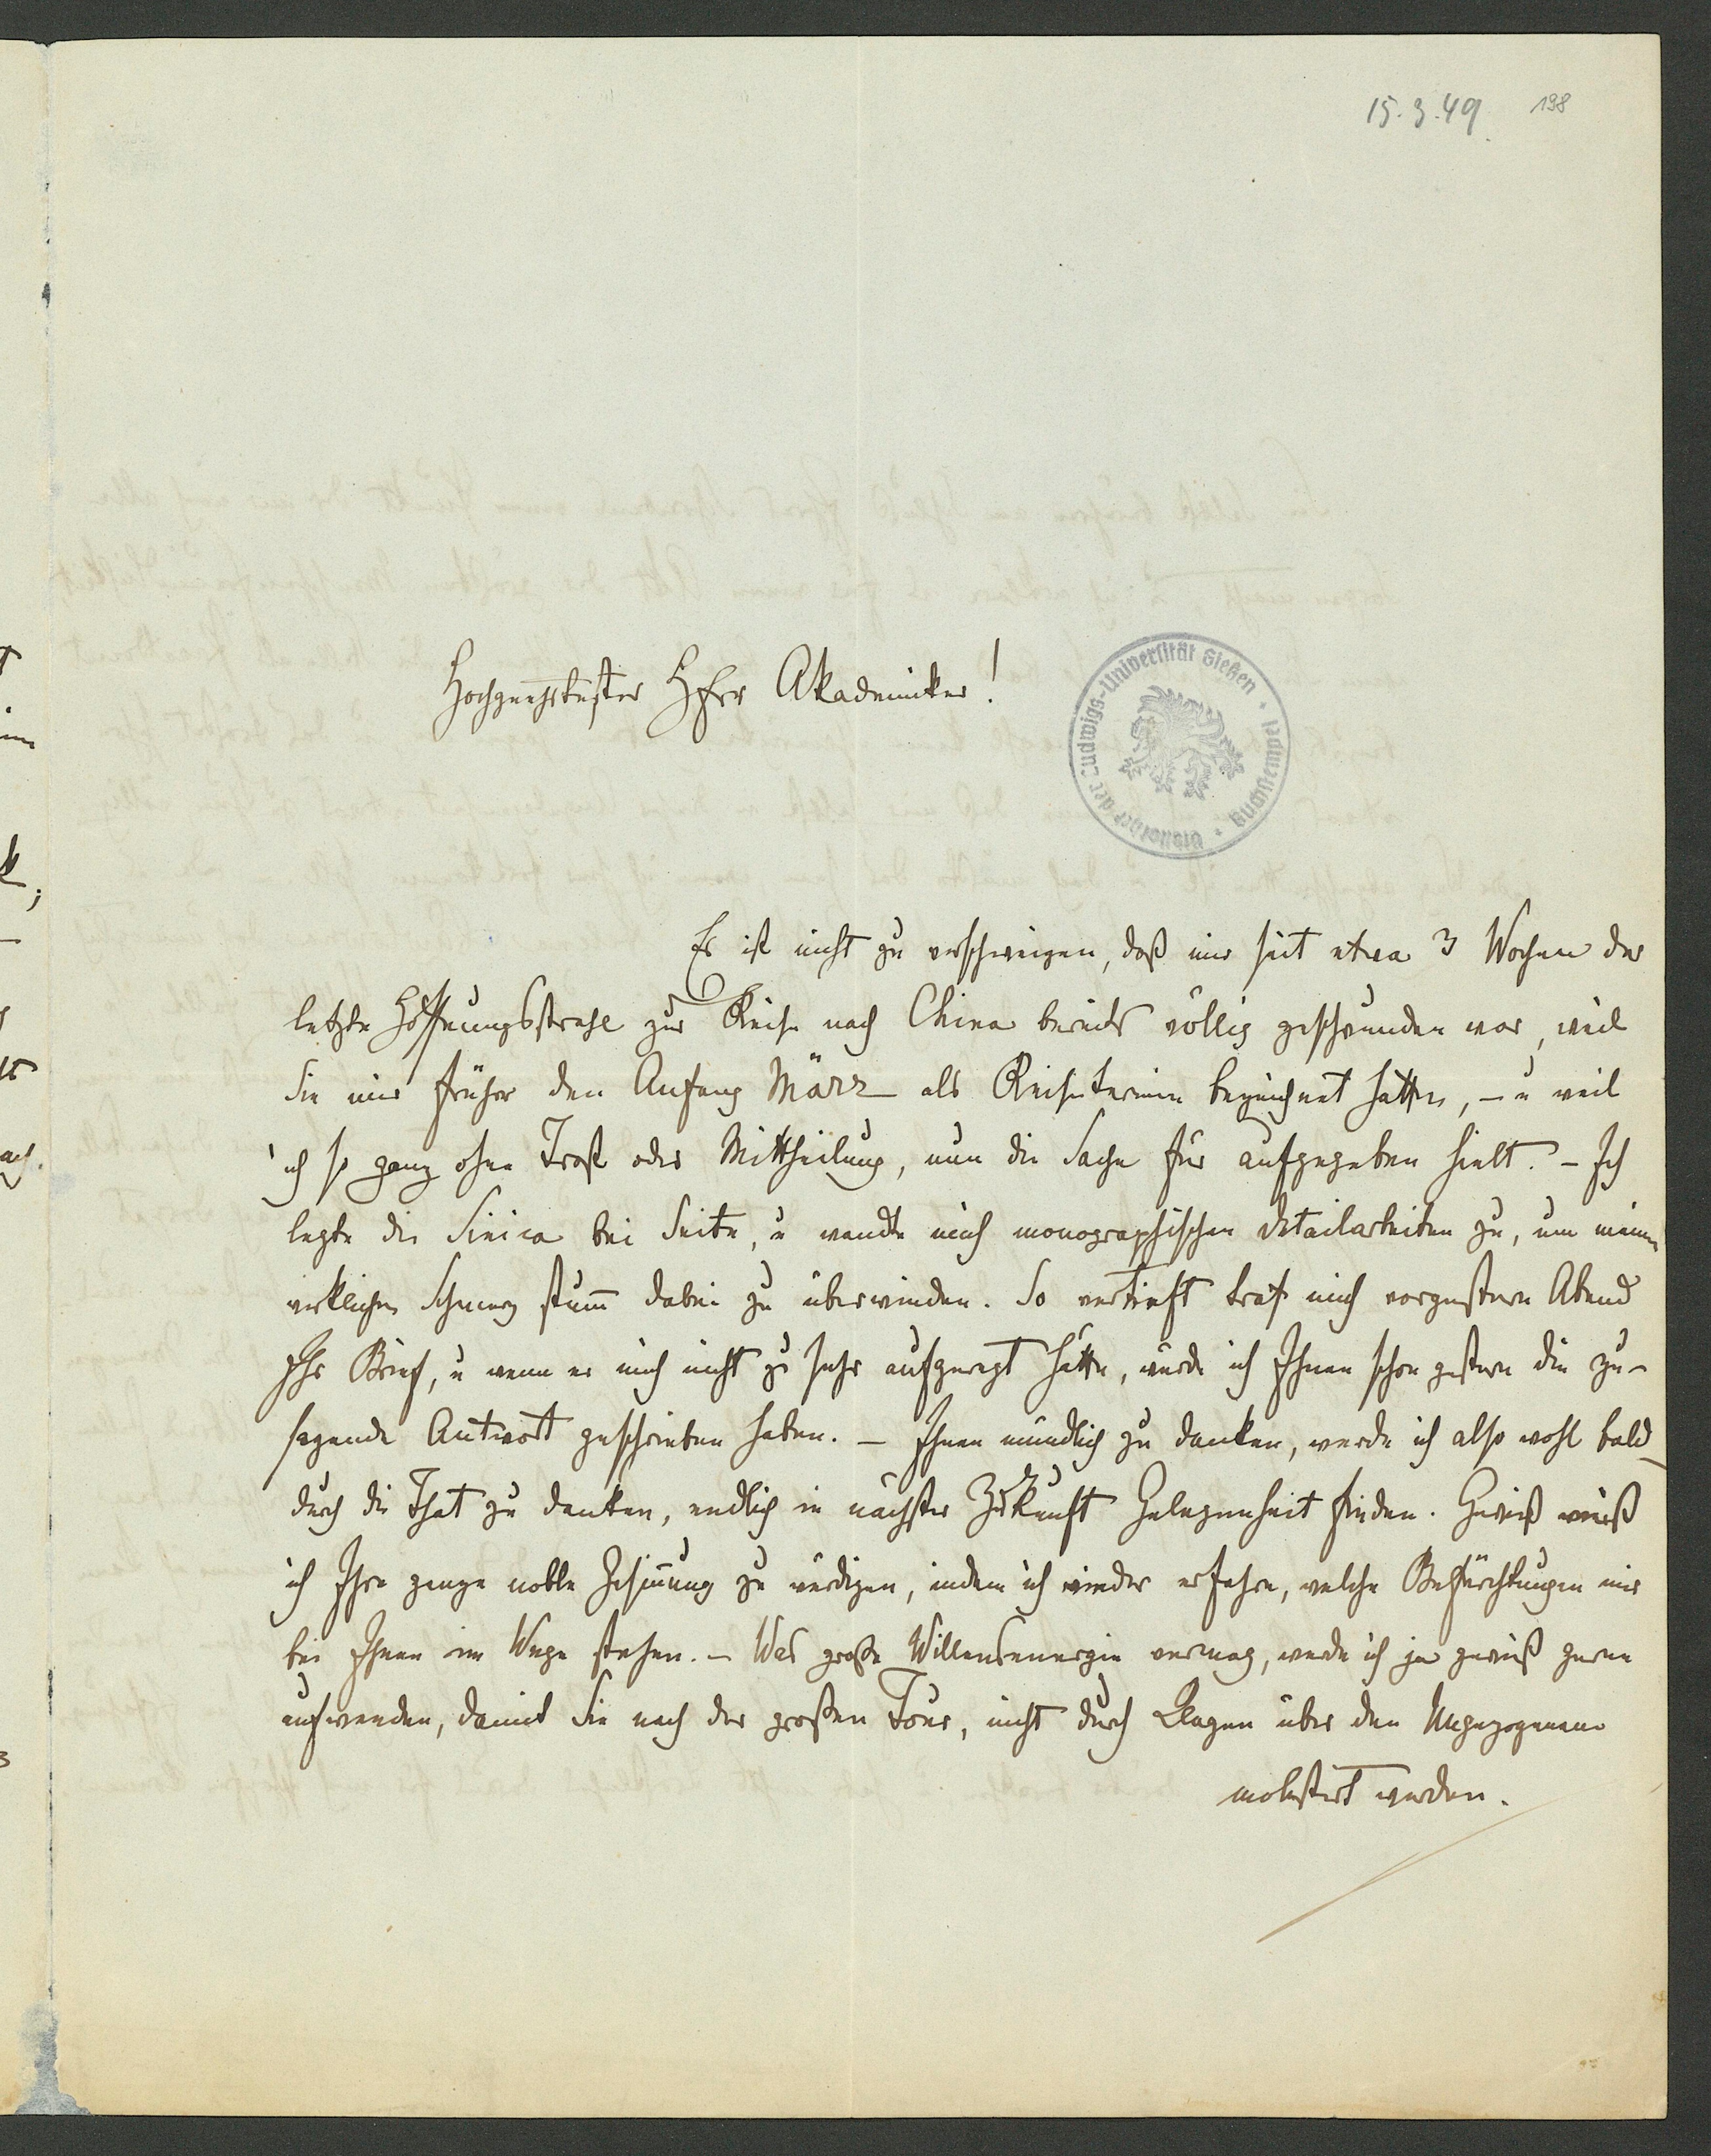 15.3.49 198
Hochgeehrtester Herr Akademiker!
Bibliothek der Ludwigs-Universität Gießen · Handstempel
Es ist nicht zu verschweigen, daß mir seit etwa 3 Wochen der
letzte Hoffnungsstrahl zur Reise nach China bereits völlig geschwunden war, weil
Sie mir früher den Anfang März als Reisetermin bezeichnet hatten, – u weil
ich so ganz ohne Trost oder Mittheilung, nun die Sache für aufgegeben hielt. – Ich
legte die Sinica bei Seite, u wandte mich monographischen Detailarbeiten zu, um meinen
wirklichen Schmerz stum̄ dabei zu überwinden. So vertieft traf mich vorgestern Abend
Ihr Brief, u wenn er mich nicht zu sehr aufgeregt hätte, würde ich Ihnen schon gestern die zu-
sagende Antwort geschrieben haben. – Ihnen mündlich zu danken, werde ich also wohl bald
durch die That zu danken, endlich in nächster Zukunft Gelegenheit finden. Gewiß weiß
ich Ihre ganze noble Gesin̄ung zu würdigen, indem ich wieder erfahre, welche Befürchtungen mir
bei Ihnen im Wege stehen. – Was große Willensenergie vermag, werde ich ja gewiß gerne
aufwenden, damit Sie nach der großen Tour, nicht durch Klagen über den Ungezogenen
molestirt werden.